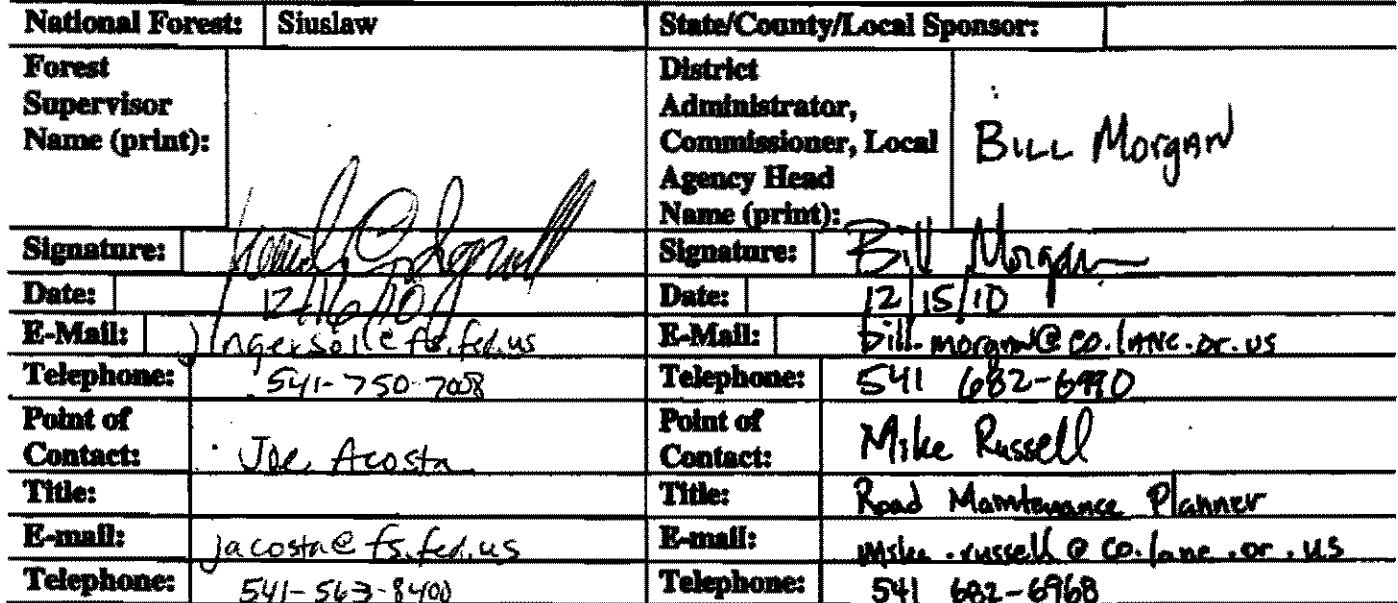 National Forest: Siuslaw State/County/Local Sponsor:
Forest Supervisor Name (print):
District Administrator, Commissioner, Local Agency Head Name (print): BILL MorgAN
Signature:
Signature: Bill Morgan
Date: 12/16/10
Date: 12/15/10
E-Mail: jingersoll@fs.fed.us
E-Mail: bill.morgan@co.lane.or.us
Telephone: 541-750-7008
Telephone: 541 682-6990
Point of Contact: Joe Acosta
Point of Contact: Mike Russell
Title:
Title: Road Maintenance Planner
E-mail: jacosta@fs.fed.us
E-mail: mike.russell@co.lane.or.us
Telephone: 541-563-8400
Telephone: 541 682-6968